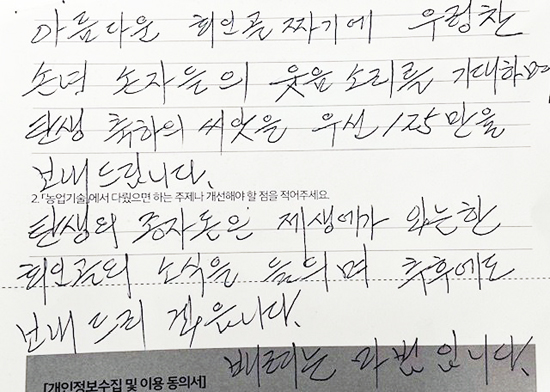 아름다운 회인골짜기에 우렁찬
손녀 손자들의 웃음소리를 기대하며
탄생 축하의 씨앗을 우선 125만을
보내드립니다.
2. 「농업기술」에서 다뤘으면 하는 주제나 개선해야 할 점을 적어주세요.
탄생의 종자돈은 제생애가 다는한
회인골의 소식을 들으며 추후에도
보내드리 겠읍니다.
배려는 마법입니다.
[개인정보수집 및 이용 동의서]